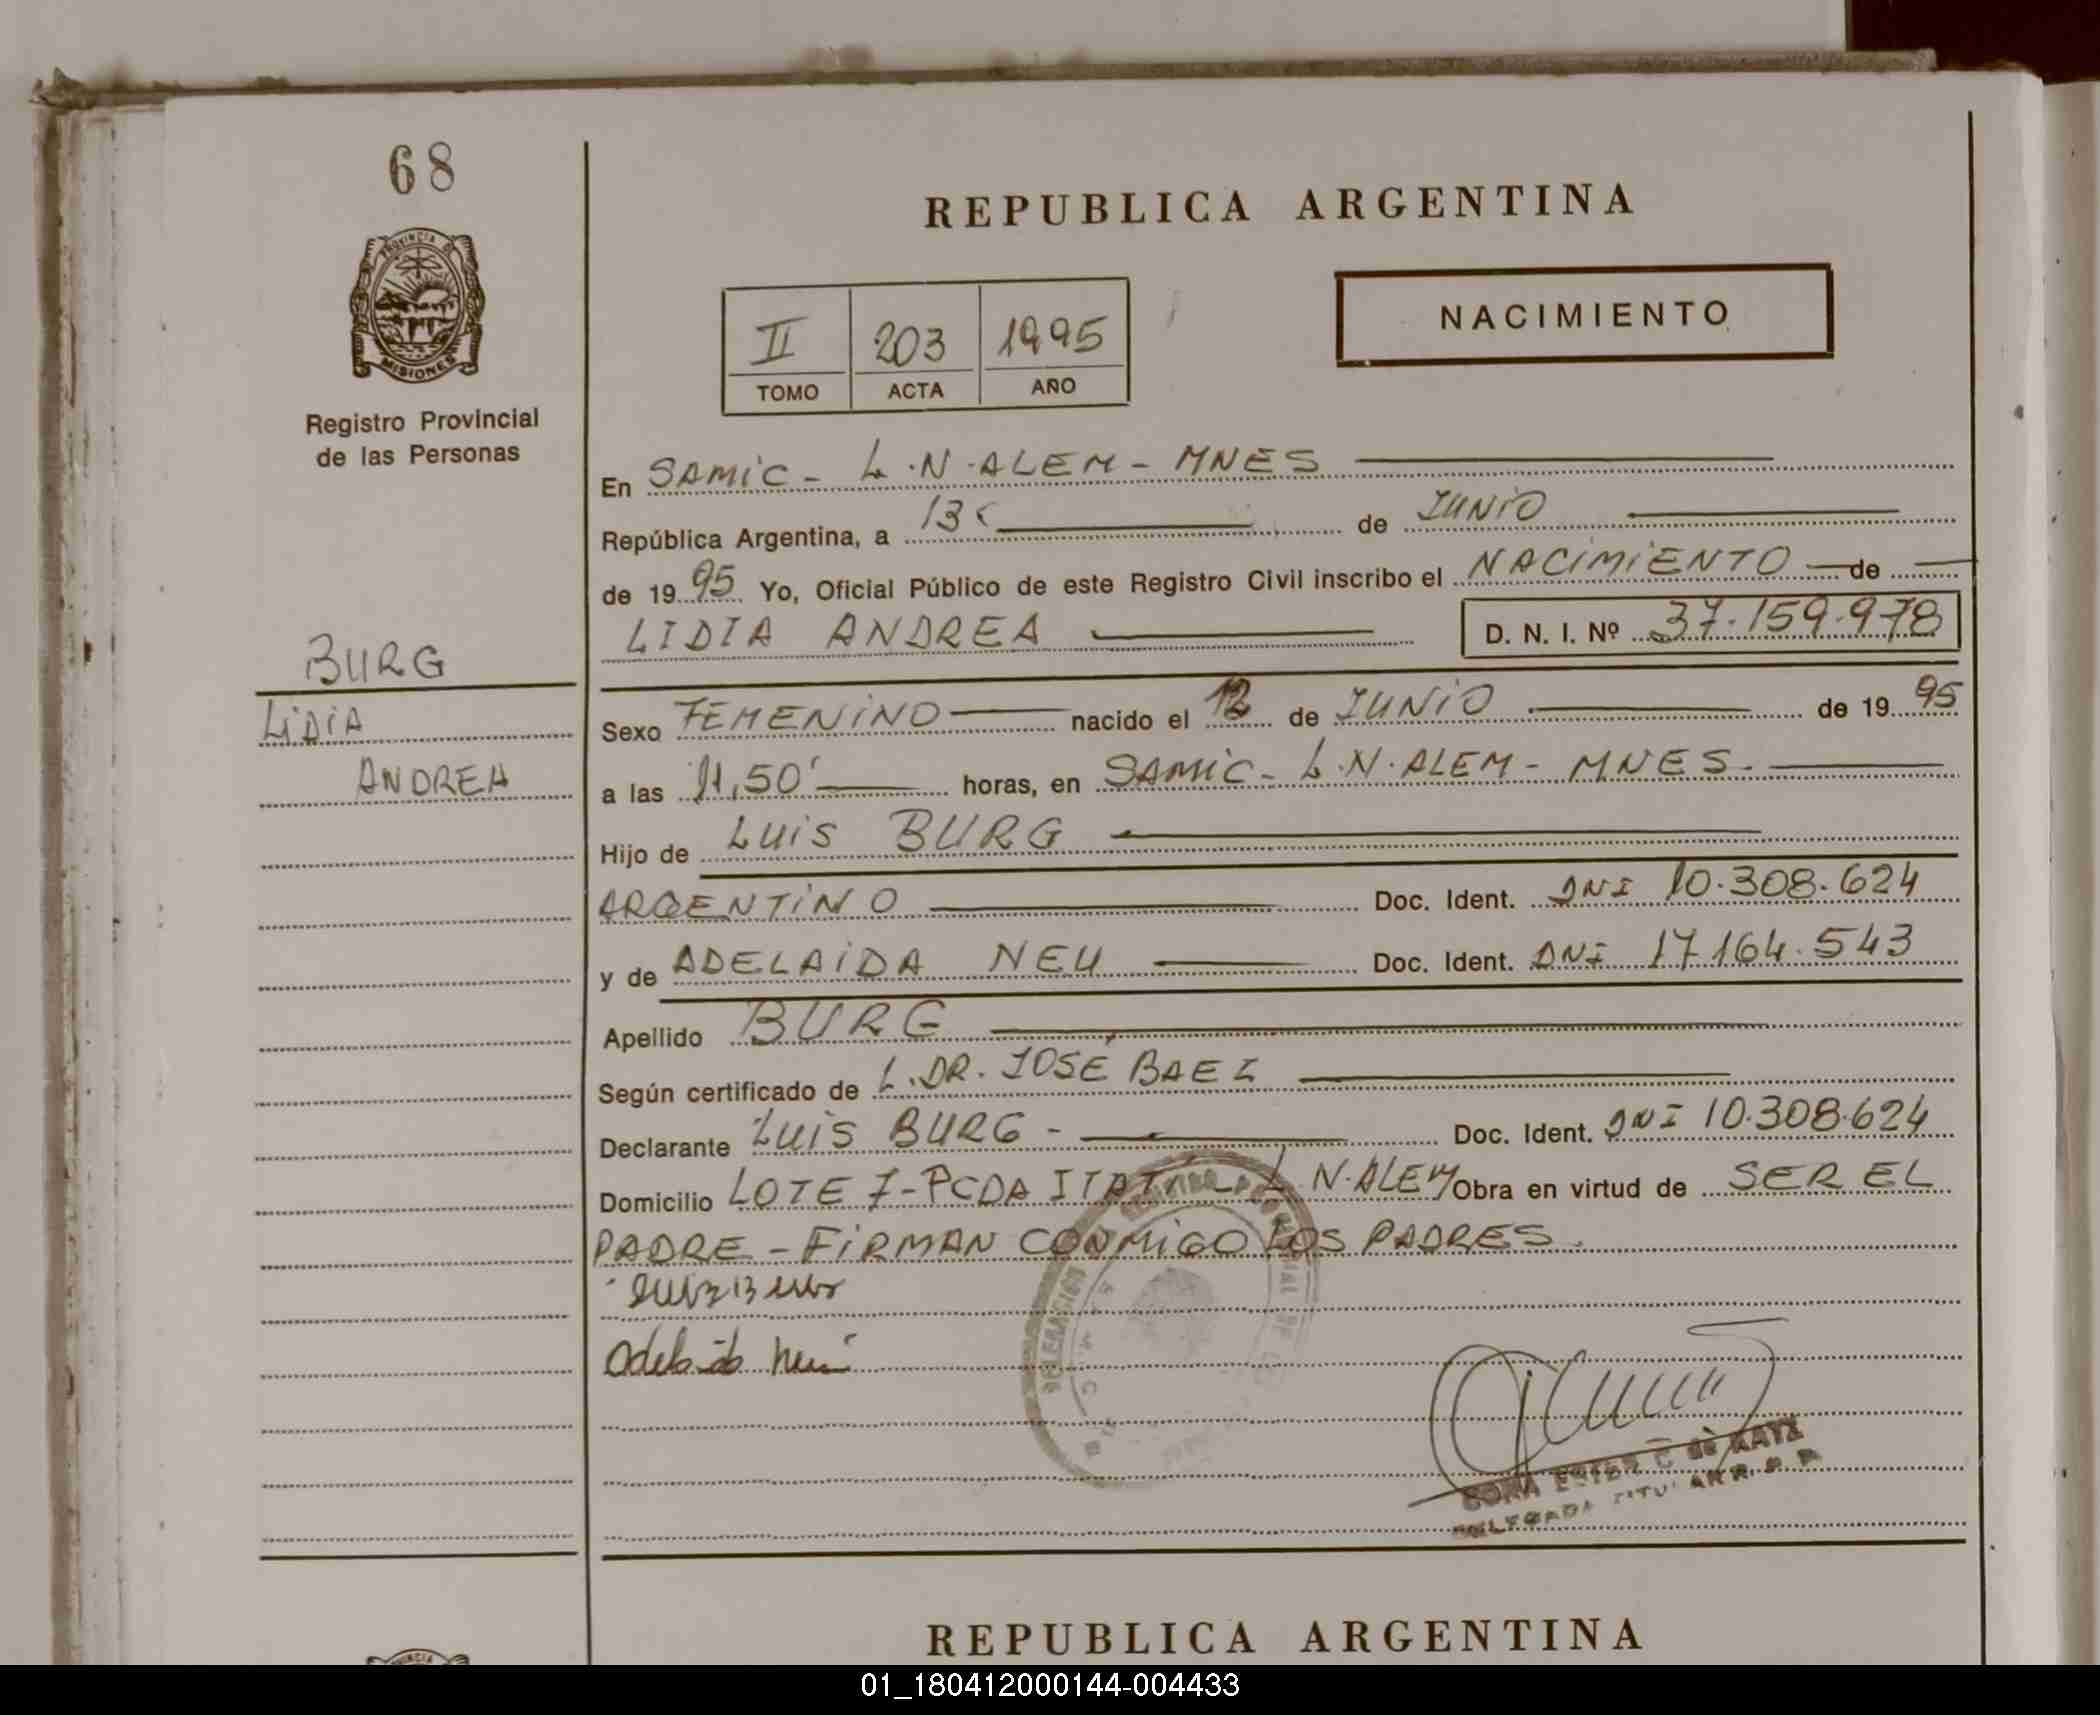 68
PROVINCIA DE
MISIONES
Registro Provincial
de las Personas
REPUBLICA ARGENTINA
NACIMIENTO
II 203 1995
TOMO ACTA AÑO
En SAMIC - L.N.ALEM - MNES
República Argentina, a 13 de JUNIO
de 1995 Yo, Oficial Público de este Registro Civil inscribo el NACIMIENTO de
LIDIA ANDREA D. N. I. Nº 37.159.978
BURG
LIDIA
ANDREA
Sexo FEMENINO nacido el 12 de JUNIO de 1995
a las 11,50' horas, en SAMIC - L.N.ALEM - MNES.
Hijo de LUIS BURG
ARGENTINO Doc. Ident. DNI 10.308.624
y de ADELAIDA NEU Doc. Ident. DNI 17.164.543
Apellido BURG
Según certificado de L. DR. JOSÉ BAEZ
Declarante LUIS BURG - Doc. Ident. DNI 10.308.624
Domicilio LOTE 7 - PCDA ITATI - L.N.ALEM Obra en virtud de SER EL
PADRE - FIRMAN CONMIGO LOS PADRES.
Adelaida Neu
ESTER C de KATZ
REPUBLICA ARGENTINA
01_180412000144-004433